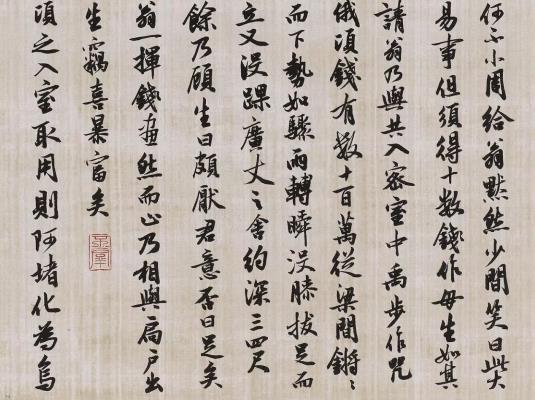 何不小周給翁默然少間笑曰此大
易事但須得十数錢作母生如其
請翁乃與共入密室中禹步作咒
俄頃錢有数十百萬從梁間鏘〻
而下勢如驟雨轉瞬沒膝拔足而
立又沒踝廣丈之舍約深三四尺
餘乃顧生曰頗厭君意否曰足矣
翁一揮錢畫然而止乃相與扃戶出
生竊喜暴富矣
頃之入室取用則阿堵化為烏